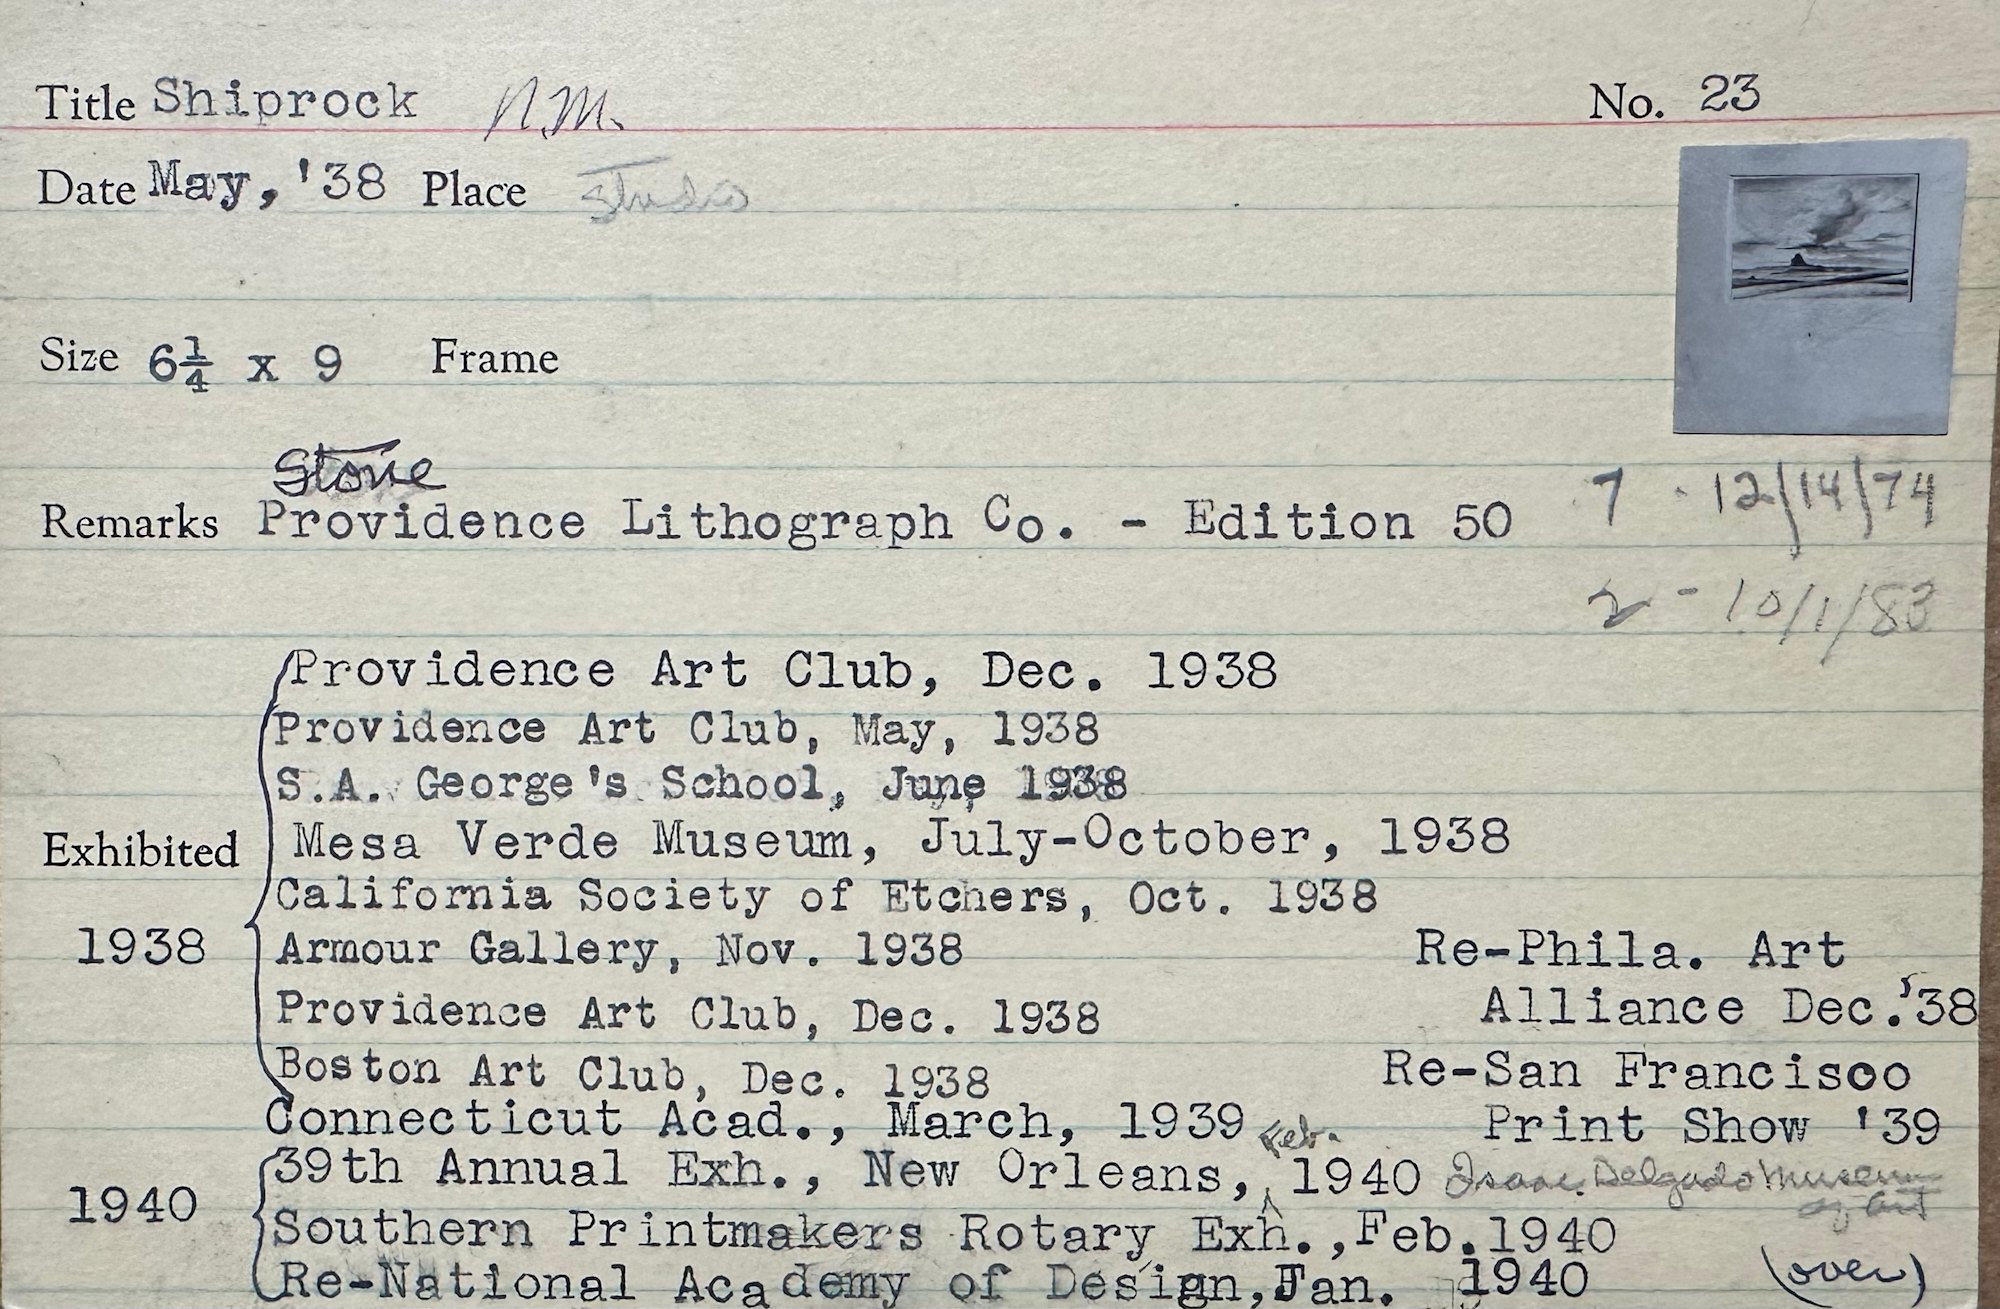 Title Shiprock N.M. No. 23
Date May, '38 Place Studio
Size 6¼ x 9 Frame
Stone
Remarks Providence Lithograph Co. - Edition 50 7 - 12/14/74
2 - 10/1/83
Providence Art Club, Dec. 1938
Providence Art Club, May, 1938
S.A. George's School, June 1938
Exhibited Mesa Verde Museum, July-October, 1938
California Society of Etchers, Oct. 1938
1938 Armour Gallery, Nov. 1938 Re-Phila. Art
Providence Art Club, Dec. 1938 Alliance Dec.'38
Boston Art Club, Dec. 1938 Re-San Francisco
Connecticut Acad., March, 1939 Print Show '39
1940 39th Annual Exh., New Orleans, Feb. 1940 Isaac Delgado Museum of Art
Southern Printmakers Rotary Exh., Feb.1940
Re-National Academy of Design, Jan. 1940 (over)